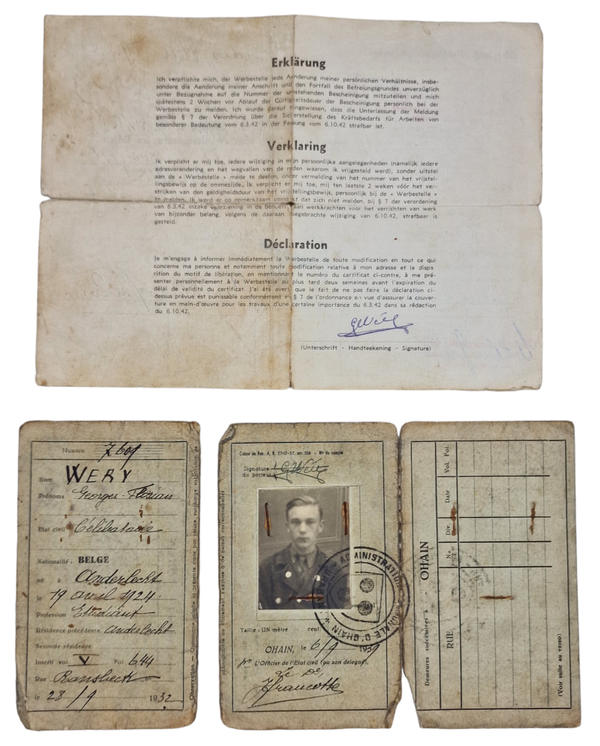 Erklärung
Ich verpflichte mich, der Werbestelle jede Aenderung meiner persönlichen Verhältnisse, insbe-
sondere die Aenderung meiner Anschrift und den Fortfall des Befreiungsgrundes unverzüglich
unter Bezugnahme auf die Nummer der umstehenden Bescheinigung mitzuteilen und mich
spätestens 2 Wochen vor Ablauf der Gültigkeitsdauer der Bescheinigung persönlich bei der
Werbestelle zu melden. Ich wurde darauf hingewiesen, dass die Unterlassung der Meldung
gemäss § 7 der Verordnung über die Sicherstellung des Kräftsbedarfs für Arbeiten von
besonderer Bedeutung vom 6.3.42 in der Fassung vom 6.10.42 strafbar ist.
Verklaring
Ik verplicht er mij toe, iedere wijziging in mijn persoonlijke aangelegenheden (namelijk iedere
adresverandering en het wegvallen van de reden waarom ik vrijgesteld werd), zonder uitstel
aan de « Werbestelle » mede te deelen, onder vermelding van het nummer van het vrijstel-
lingsbewijs op de ommezijde. Ik verplicht er mij toe, mij ten laatste 2 weken vóór het ver-
strijken van den geldigheidsduur van het vrijstellingsbewijs, persoonlijk bij de « Werbestelle »
te melden. Ik werd er op opmerkzaam gemaakt dat zich niet melden, bij § 7 der verordening
van 6.3.42 inzake voorziening in de behoeften aan werkkrachten voor het verrichten van werk
van bijzonder belang, volgens de daaraan toegebrachte wijziging van 6.10.42, strafbaar is
gesteld.
Déclaration
Je m'engage à informer immédiatement la Werbestelle de toute modification en tout ce qui
concerne ma personne et notamment toute modification relative à mon adresse et la dispa-
rition du motif de libération, en mentionnant le numéro du certificat ci-contre, à me pré-
senter personnellement à la Werbestelle au plus tard deux semaines avant l'expiration du
délai de validité du certificat. J'ai été averti que le fait de ne pas faire la déclaration ci-
dessous prévue est punissable conformément au § 7 de l'ordonnance en vue d'assurer la couver-
ture en main-d'œuvre pour les travaux d'une certaine importance du 6.3.42 dans sa rédaction
du 6.10.42.
GWéry
(Unterschrift - Handteekening - Signature)
Numéro 7609
Nom WERY
Prénoms Georges-Florian
Etat civil Célibataire
Nationalité: BELGE
né à Anderlecht
le 19 avril 1924
Profession Etudiant
Résidence précédente Anderlecht
Seconde résidence
Inscrit vol V Fol 644
Rue Ransbeck
le 28/9 1932
Signature du porteur GWéry
Taille: UN mètre cent
ADMINISTRATION COMMUNALE D'OHAIN
OHAIN, le 6/9 1939
Pr L'Officier de l'Etat civil (ou son délégué)
Francotte
OHAIN
Demeures successives:
RUE
No
Div.
Date
Vol. Fol.
(Voir suite au verso)